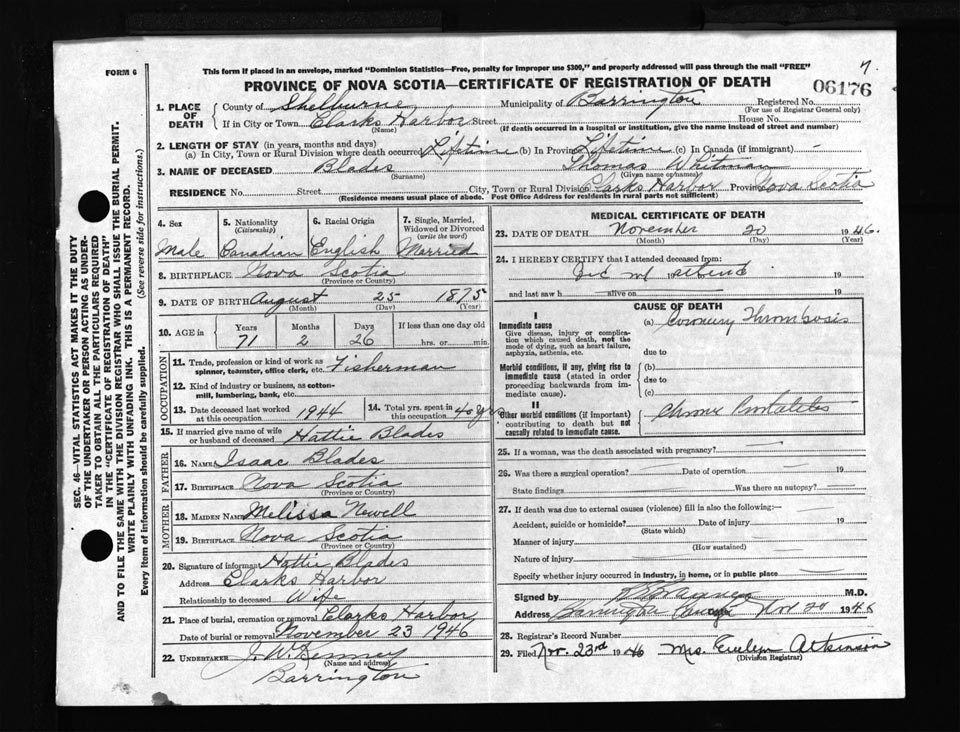 FORM 6
This form if placed in an envelope, marked "Dominion Statistics—Free, penalty for improper use $300," and properly addressed will pass through the mail "FREE"
7.
PROVINCE OF NOVA SCOTIA—CERTIFICATE OF REGISTRATION OF DEATH
06176
1. PLACE OF DEATH
County of Shelburne Municipality of Barrington Registered No.
(For use of Registrar General only)
If in City or Town Clarks Harbor Street House No.
(Name) (If death occurred in a hospital or institution, give the name instead of street and number)
2. LENGTH OF STAY (in years, months and days)
(a) In City, Town or Rural Division where death occurred Lifetime (b) In Province Lifetime (c) In Canada (if immigrant) -
3. NAME OF DECEASED Blades Thomas Whitman
(Surname) (Given name or names)
RESIDENCE No. Street City, Town or Rural Division Clarks Harbor Province Nova Scotia
(Residence means usual place of abode. Post Office Address for residents in rural parts not sufficient)
SEC. 46—VITAL STATISTICS ACT MAKES IT THE DUTY
OF THE UNDERTAKER OR PERSON ACTING AS UNDER-
TAKER TO OBTAIN ALL THE PARTICULARS REQUIRED
IN THE "CERTIFICATE OF REGISTRATION OF DEATH"
AND TO FILE THE SAME WITH THE DIVISION REGISTRAR WHO SHALL ISSUE THE BURIAL PERMIT.
WRITE PLAINLY WITH UNFADING INK. THIS IS A PERMANENT RECORD.
Every item of information should be carefully supplied. (See reverse side for instructions.)
4. Sex 5. Nationality (Citizenship) 6. Racial Origin 7. Single, Married, Widowed or Divorced (write the word)
Male Canadian English Married
8. BIRTHPLACE Nova Scotia
(Province or Country)
9. DATE OF BIRTH August 25 1875
(Month) (Day) (Year)
10. AGE in Years Months Days If less than one day old
71 2 26 hrs. or min.
OCCUPATION
11. Trade, profession or kind of work as spinner, teamster, office clerk, etc. Fisherman
12. Kind of industry or business, as cotton-mill, lumbering, bank, etc.
13. Date deceased last worked at this occupation 1944 14. Total yrs. spent in this occupation 40 yrs
15. If married give name of wife or husband of deceased Hattie Blades
FATHER
16. NAME Isaac Blades
17. BIRTHPLACE Nova Scotia
(Province or Country)
MOTHER
18. MAIDEN NAME Melissa Newell
19. BIRTHPLACE Nova Scotia
(Province or Country)
20. Signature of informant Hattie Blades
Address Clarks Harbor
Relationship to deceased Wife
21. Place of burial, cremation or removal Clarks Harbor
Date of burial or removal November 23 1946
22. UNDERTAKER J. W. Denney
(Name and address)
Barrington
MEDICAL CERTIFICATE OF DEATH
23. DATE OF DEATH November 20 1946.
(Month) (Day) (Year)
24. I HEREBY CERTIFY that I attended deceased from:
Did not attend 19
and last saw h alive on 19
CAUSE OF DEATH
I
Immediate cause
Give disease, injury or complication which caused death, not the mode of dying, such as heart failure, asphyxia, asthenia, etc.
(a) Coronary Thrombosis
due to
Morbid conditions, if any, giving rise to immediate cause (stated in order proceeding backwards from immediate cause)
(b)
due to
(c)
II
Other morbid conditions (if important) contributing to death but not causally related to immediate cause.
Chronic
25. If a woman, was the death associated with pregnancy?
26. Was there a surgical operation? Date of operation 19
State findings Was there an autopsy?
27. If death was due to external causes (violence) fill in also the following:—
Accident, suicide or homicide? Date of injury 19
(State which)
Manner of injury
(How sustained)
Nature of injury
Specify whether injury occurred in industry, in home, or in public place
Signed by M.D.
Address Barrington Nov 20 1946
28. Registrar's Record Number
29. Filed Nov. 23rd 1946 Mrs. Evelyn Atkinson
(Division Registrar)